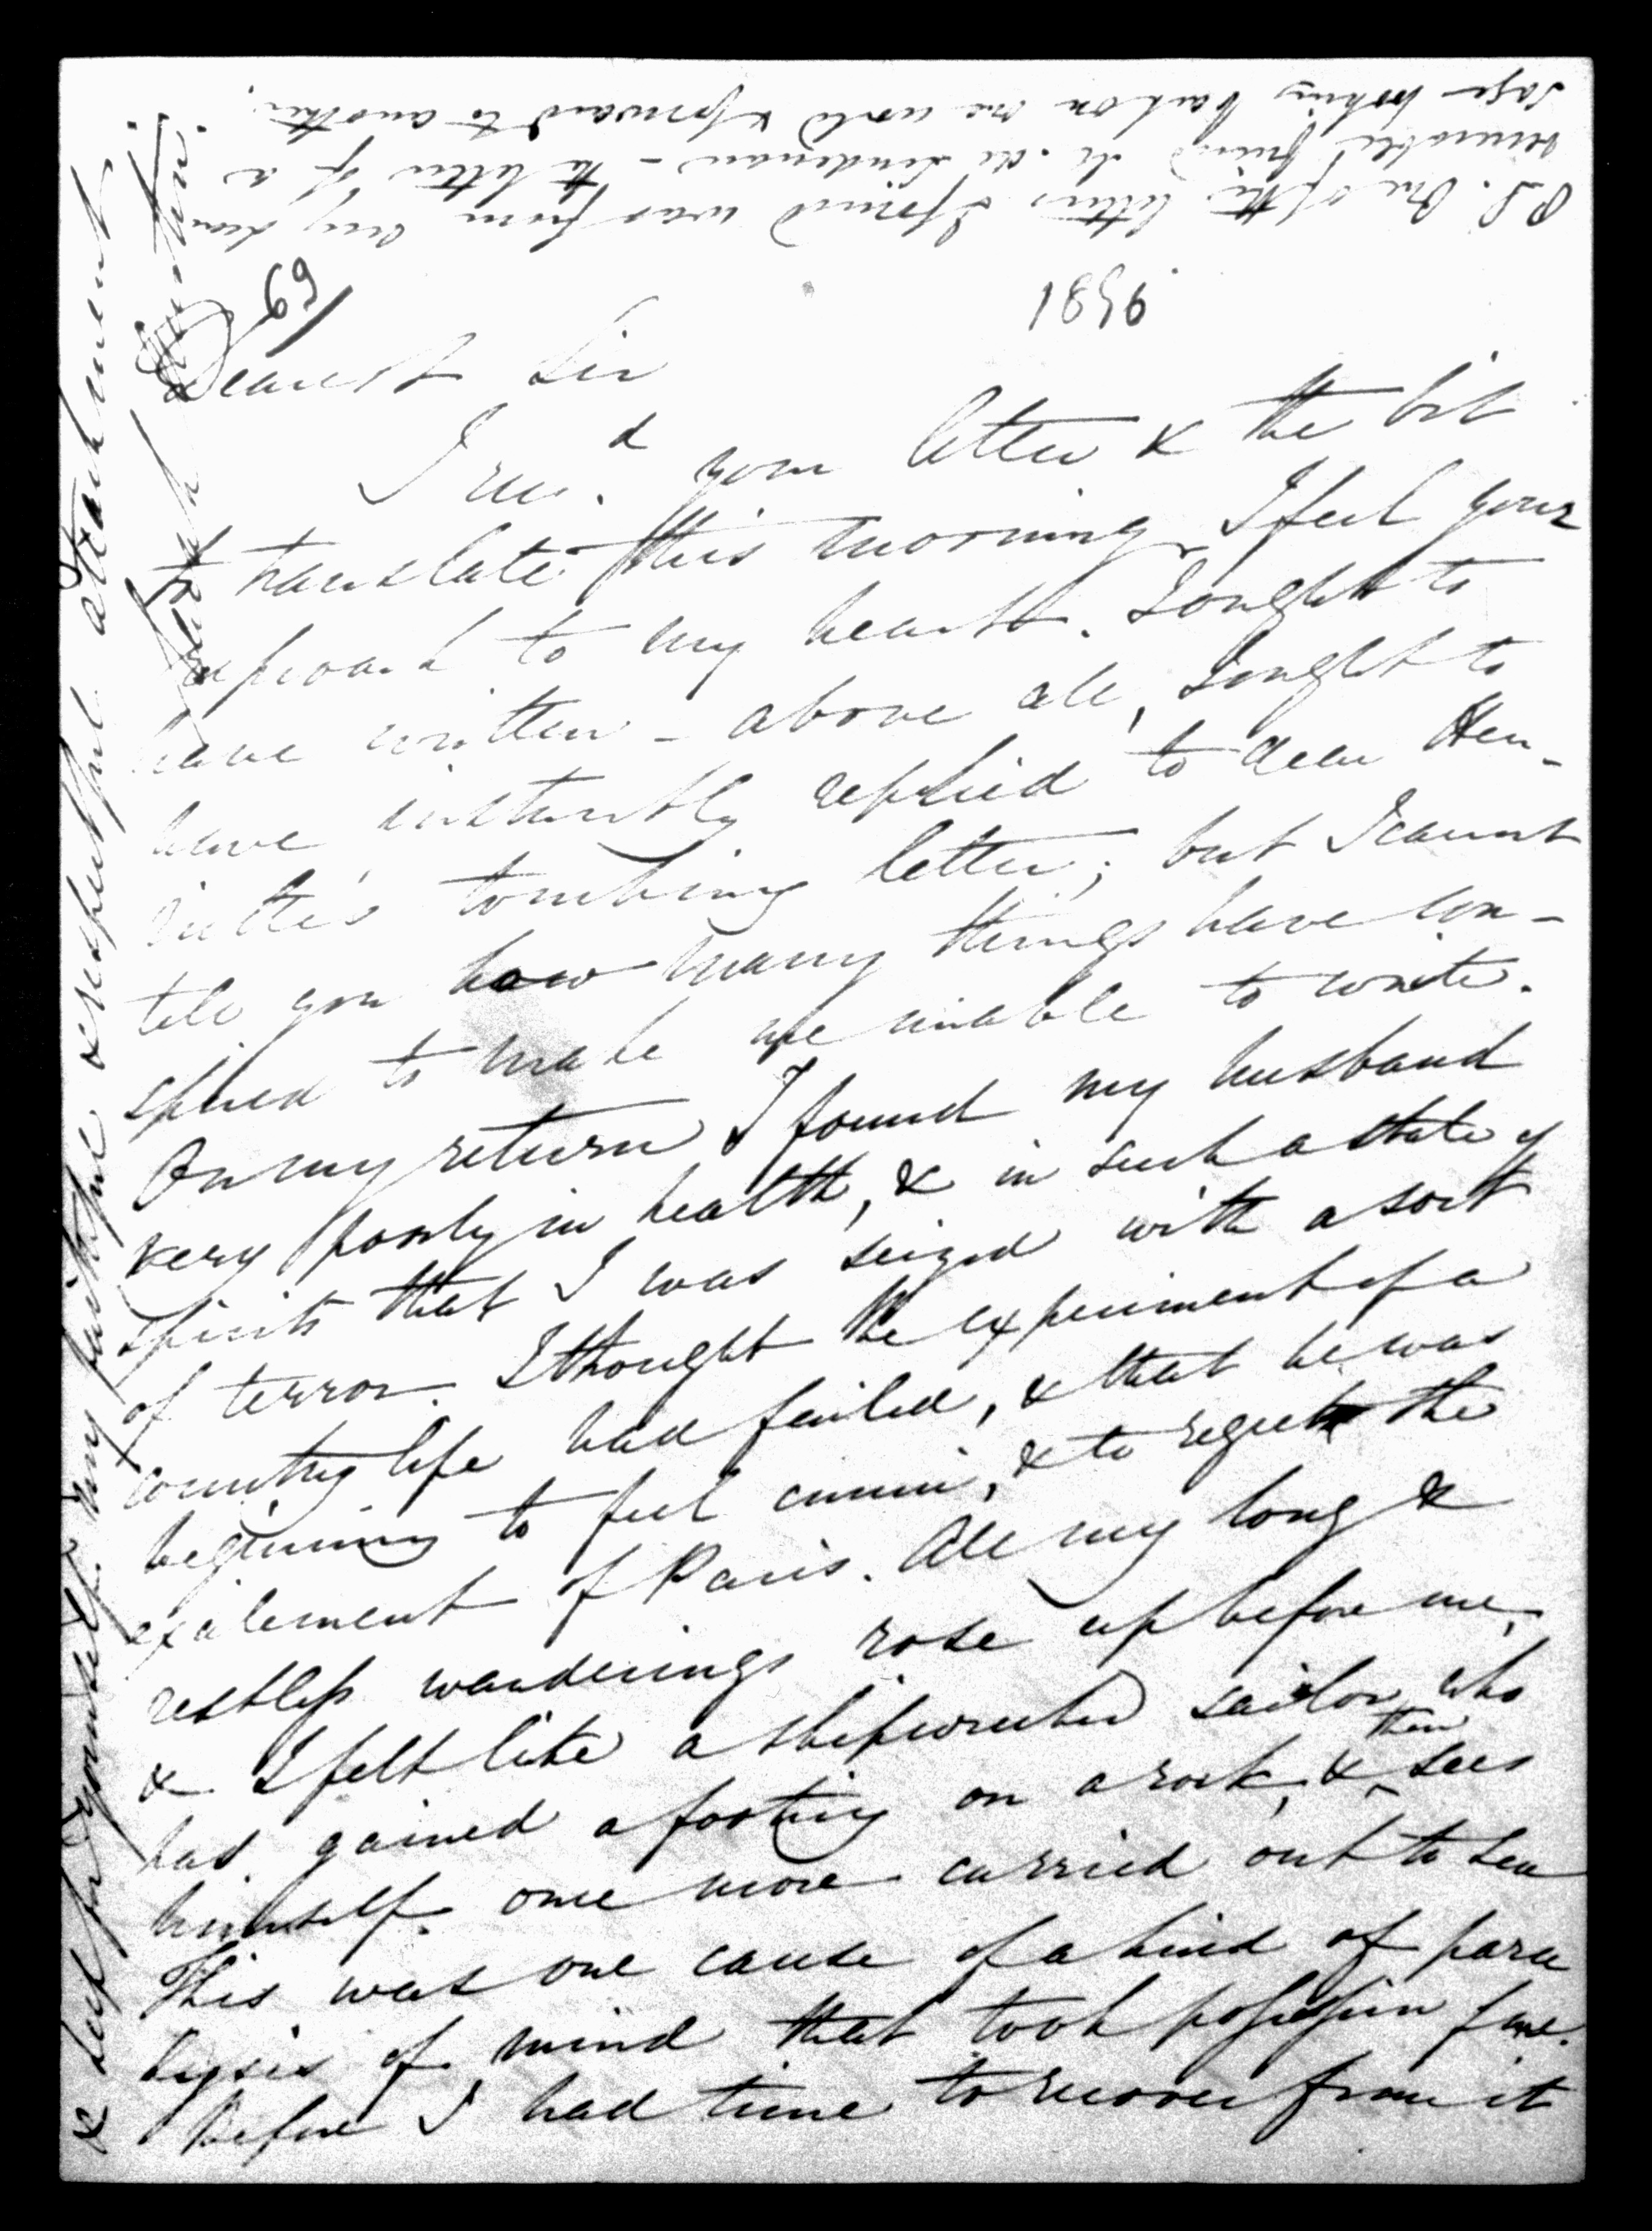 P.S. One of the letters I found was from my dear
venerable friend M. de Lindenau – the letter of a
sage looking back on one world & forward to another.
69/
1856
Dearest Sir
I recd. your letter & the bit
to translate this morning. I feel your
reproach to my heart. I ought to
have written – above all, I ought to
have instantly replied to dear Hen-
riette's touching letter; but I cannot
tell you how many things have con-
spired to make me unable to write.
On my return I found my husband
very poorly in health, & in such a state of
spirits that I was seized with a sort
of terror. I thought the experiment of a
country life had failed, & that he was
beginning to feel ennui, & to regret the
excitement of Paris. All my long &
restless wanderings rose up before me,
& I felt like a shipwrecked sailor who
has gained a footing on a rock, & then sees
himself once more carried out to sea
This was one cause of a kind of para
lysis of mind that took possession of me.
Before I had time to recover from it
& keep for yourself my faithful & respectful attachment.
Sarah Austin.